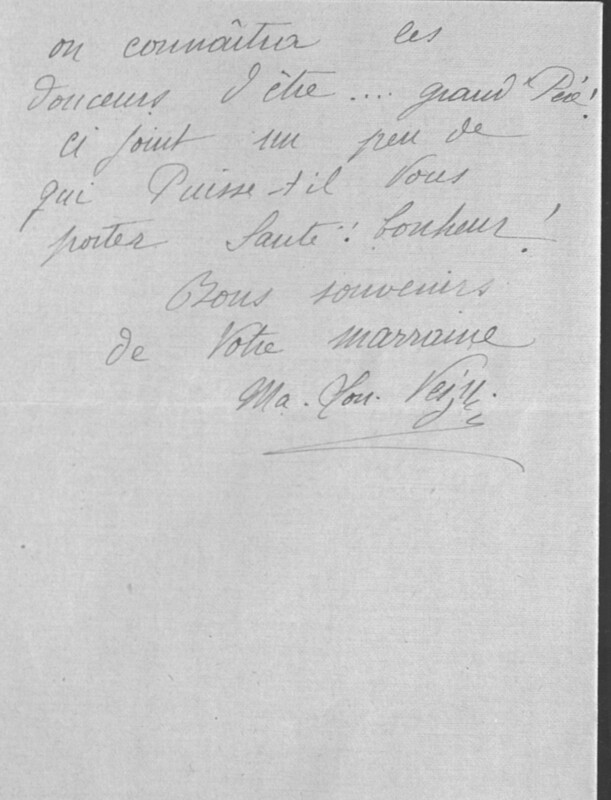 on connaîtra les
douceurs d'être ... grand'Père!
ci joint un peu de
qui Puisse-t-il Vous
porter Santé!! bonheur!
Bons souvenirs
de Votre marraine
Ma.